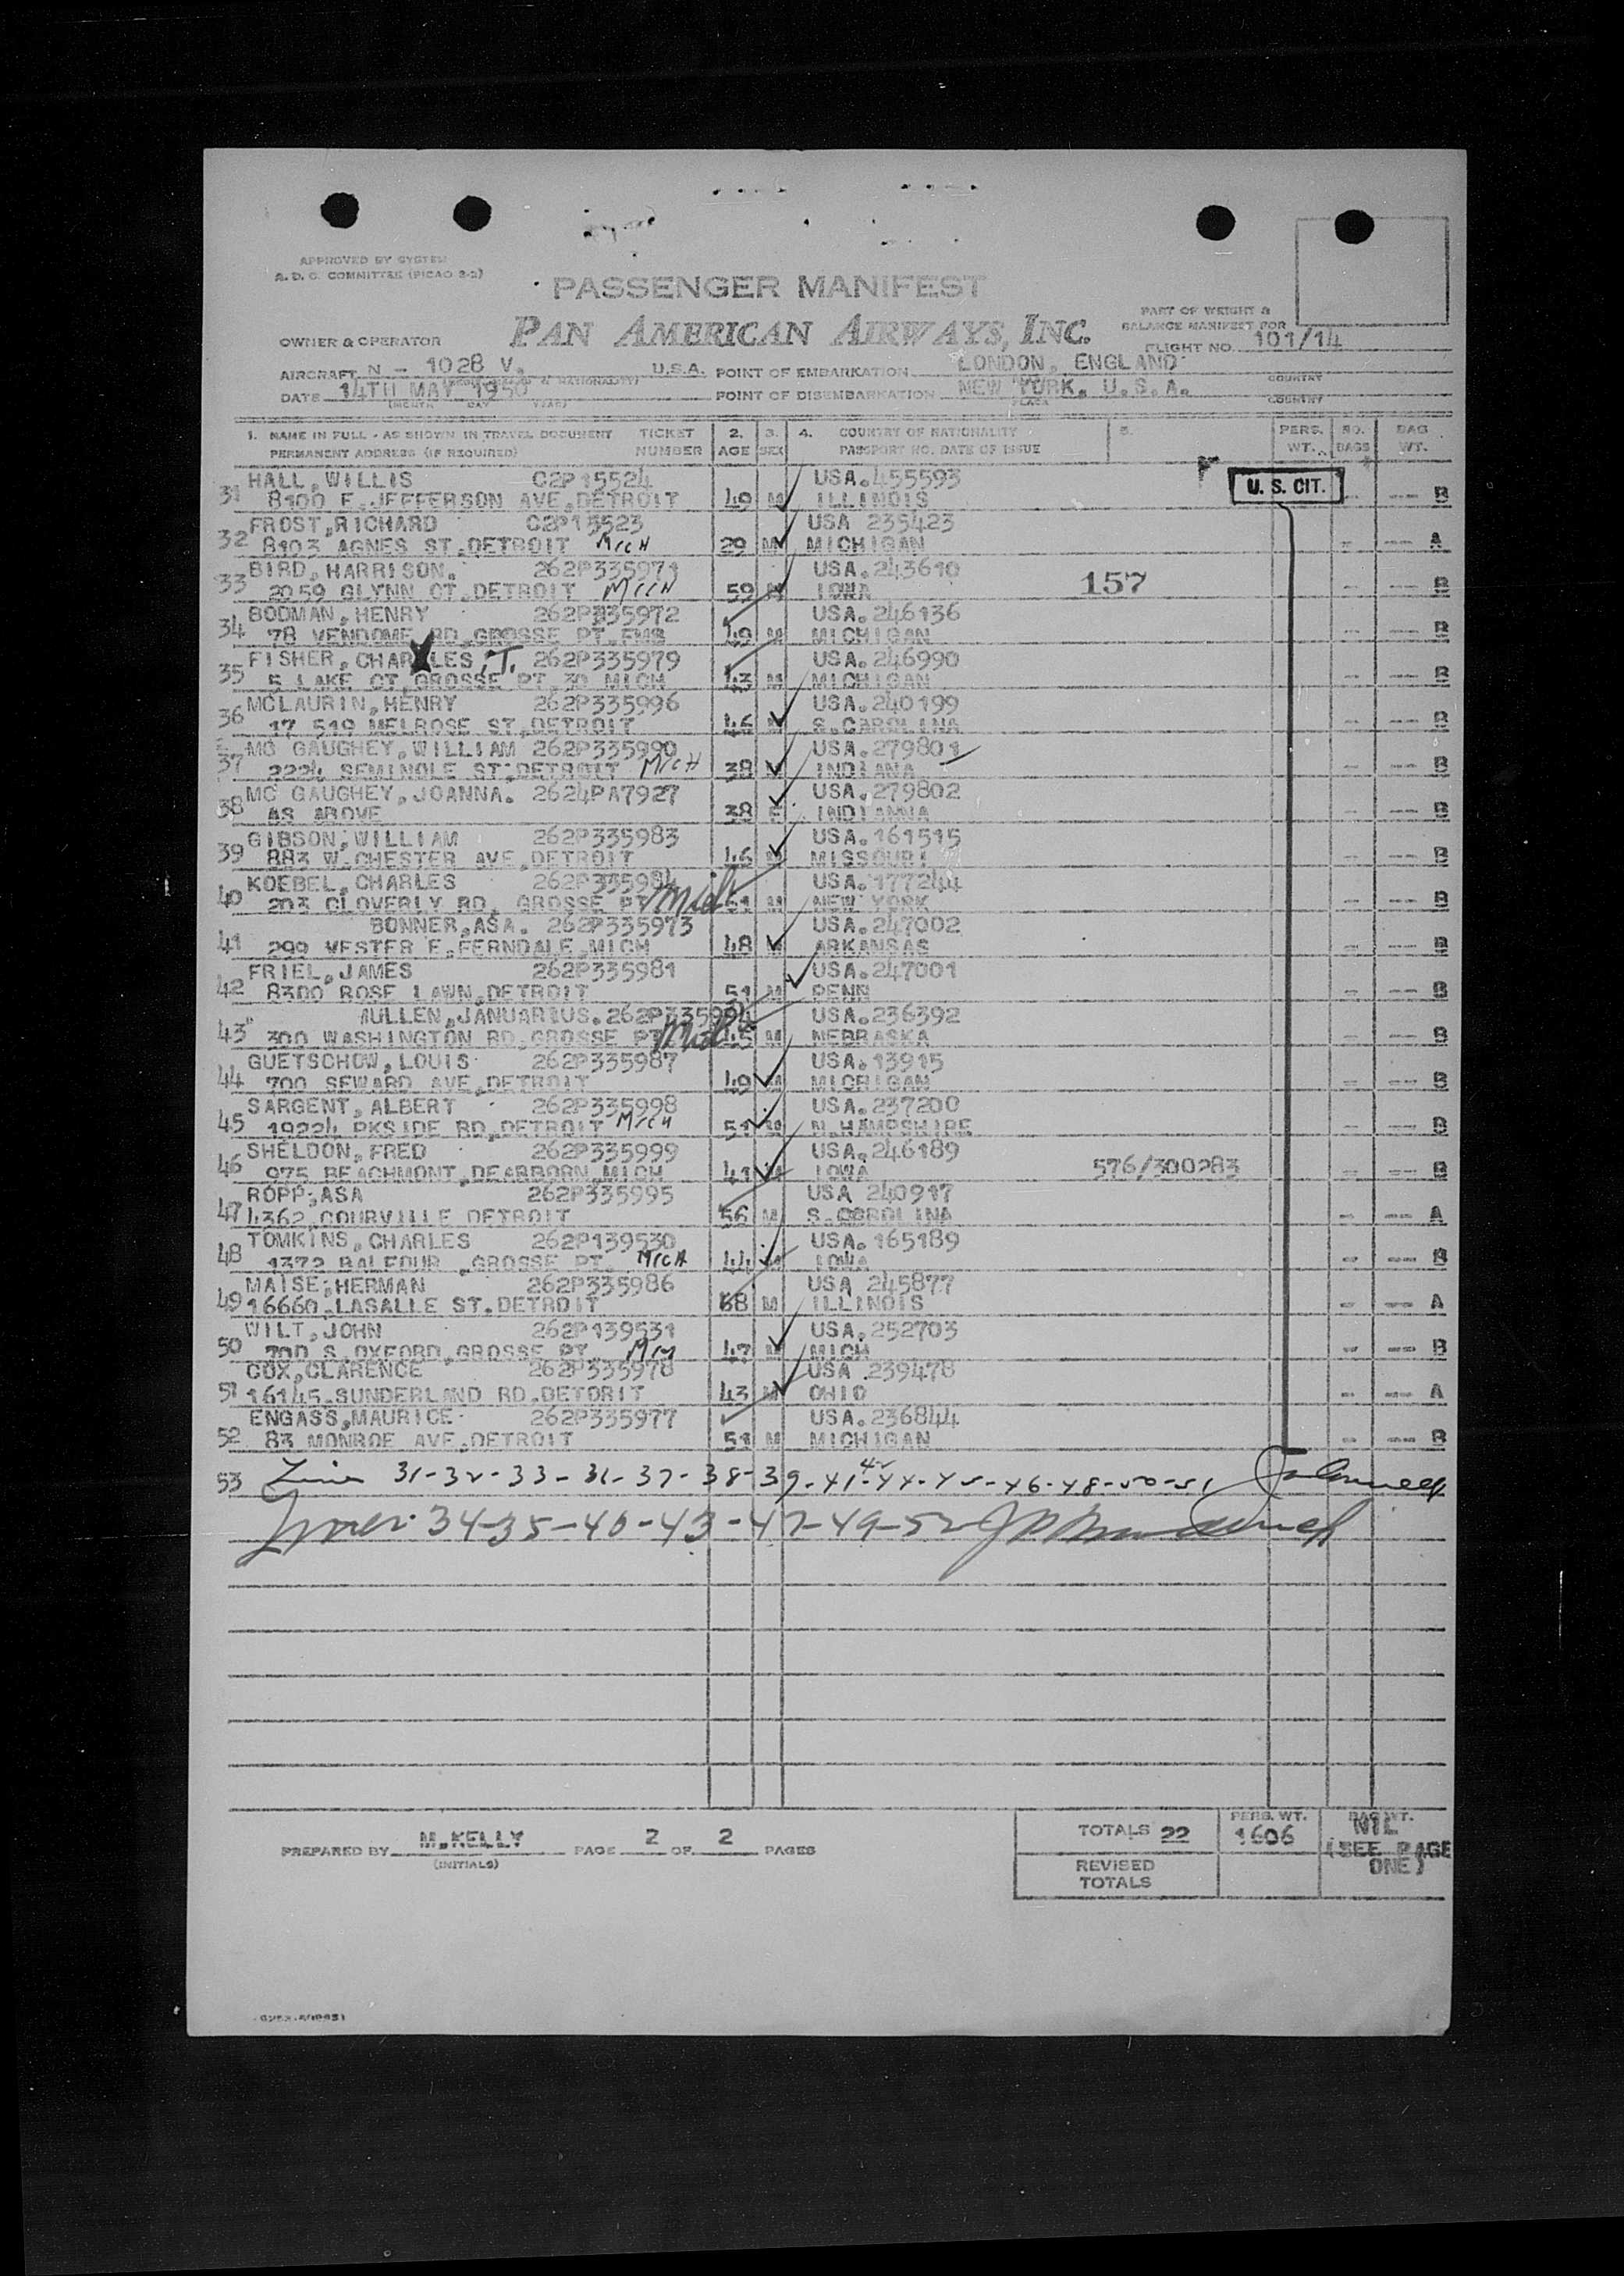 APPROVED BY SYSTEM
A. D. C. COMMITTEE (PICAO 2-2)
PASSENGER MANIFEST
PART OF WEIGHT &
BALANCE MANIFEST FOR
OWNER & OPERATOR PAN AMERICAN AIRWAYS, INC. FLIGHT NO. 101/14
AIRCRAFT N - 1028 V. U.S.A. POINT OF EMBARKATION LONDON, ENGLAND COUNTRY
DATE 14TH MAY 1950 POINT OF DISEMBARKATION NEW YORK, U.S.A. COUNTRY
(MONTH DAY YEAR) PLACE
1. NAME IN FULL - AS SHOWN IN TRAVEL DOCUMENT TICKET 2. 3. 4. COUNTRY OF NATIONALITY 5. PERS. NO. BAG
PERMANENT ADDRESS (IF REQUIRED) NUMBER AGE SEX PASSPORT NO. DATE OF ISSUE WT. BAGS WT.
HALL, WILLIS C2P15524 USA.455593 U. S. CIT.
31 8100 E.JEFFERSON AVE,DETROIT 49 M ILLINOIS - -- B
FROST,RICHARD C2P15523 USA 235423
32 8103 AGNES ST.DETROIT MICH 29 M MICHIGAN - -- A
BIRD, HARRISON. 262P335971 USA.243610 157
33 2059 GLYNN CT.DETROIT MICH 59 M IOWA - -- B
BODMAN, HENRY 262P335972 USA.246136
34 78 VENDOME RD,GROSSE PT.FMS 49 M MICHIGAN - -- B
FISHER, CHARLES, T. 262P335979 USA.246990
35 5 LAKE CT,GROSSE PT. 30 MICH 43 M MICHIGAN - -- B
MCLAURIN,HENRY 262P335996 USA.240199
36 17 519 MELROSE ST.DETROIT 46 M S.CAROLINA - -- B
MC GAUGHEY,WILLIAM 262P335990 USA.279801
37 2224 SEMINOLE ST.DETROIT MICH 38 M INDIANA - -- B
MC GAUGHEY,JOANNA. 2624PA7927 USA.279802
38 AS ABOVE 38 F INDIANNA - -- B
GIBSON,WILLIAM 262P335983 USA.161515
39 883 W.CHESTER AVE,DETROIT 46 M MISSOURI - -- B
KOEBEL, CHARLES 262P335984 USA.177244
40 203 CLOVERLY RD, GROSSE PT Mich 51 M NEW YORK - -- B
BONNER,ASA. 262P335973 USA.247002
41 299 VESTER E.FERNDALE,MICH 48 M ARKANSAS - -- B
FRIEL,JAMES 262P335981 USA.247001
42 8300 ROSE LAWN,DETROIT 51 M PENN - -- B
MULLEN,JANUARIUS. USA.236392
43 300 WASHINGTON RD,GROSSE PT Mich 45 M NEBRASKA - -- B
GUETSCHOW, LOUIS 262P335987 USA.13915
44 700 SEWARD AVE,DETROIT 49 M MICHIGAN - -- B
SARGENT, ALBERT 262P335998 USA.237200
45 19224 PKSIDE RD,DETROIT MICH 51 M N.HAMPSHIRE - -- B
SHELDON, FRED 262P335999 USA.246189
46 975 BEACHMONT,DEARBORN,MICH 41 M IOWA 576/300283 - -- B
ROPP,ASA 262P335995 USA 240917
47 4362.COURVILLE DETROIT 56 M S.COROLINA - -- A
TOMKINS, CHARLES 262P139530 USA.165189
48 1372 BALFOUR ,GROSSE PT. MICH 44 M IOWA - -- B
MAISE,HERMAN 262P335986 USA 245877
49 16660.LASALLE ST.DETROIT 68 M ILLINOIS - -- A
WILT,JOHN 262P139531 USA.252703
50 700 S.OXFORD,GROSSE PT. 47 M MICH - -- B
COX,CLARENCE 262P335978 USA .239478
51 16145.SUNDERLAND RD.DETORIT 43 M OHIO - -- A
ENGASS,MAURICE 262P335977 USA.236844
52 83 MONROE AVE,DETROIT 51 M MICHIGAN - -- B
53 31-32-33-36-37-38-39-41-42-44-45-46-48-50-51
34-35-40-43-47-49-52
PREPARED BY M.KELLY PAGE 2 OF 2 PAGES
(INITIALS)
TOTALS 22 PERS. WT. 1606 BAG WT. NIL
(SEE PAGE ONE)
REVISED
TOTALS